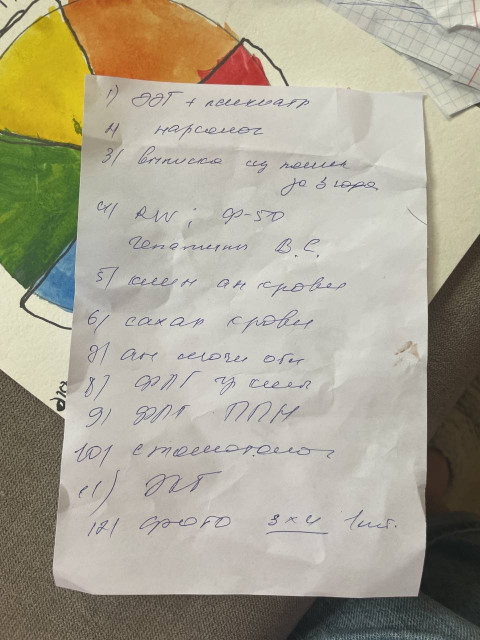 1) ЭЭГ + психиатр
2) нарколог
3) выписка из полик
за 3 года
4) RW; Ф-50
Гепатиты В.С.
5) клин ан крови
6) сахар крови
7) ан мочи общ
8) ФЛГ гр клет
9) ФЛГ ППН
10) стоматолог
11) ЭКГ
12) фото 3х4 1шт.